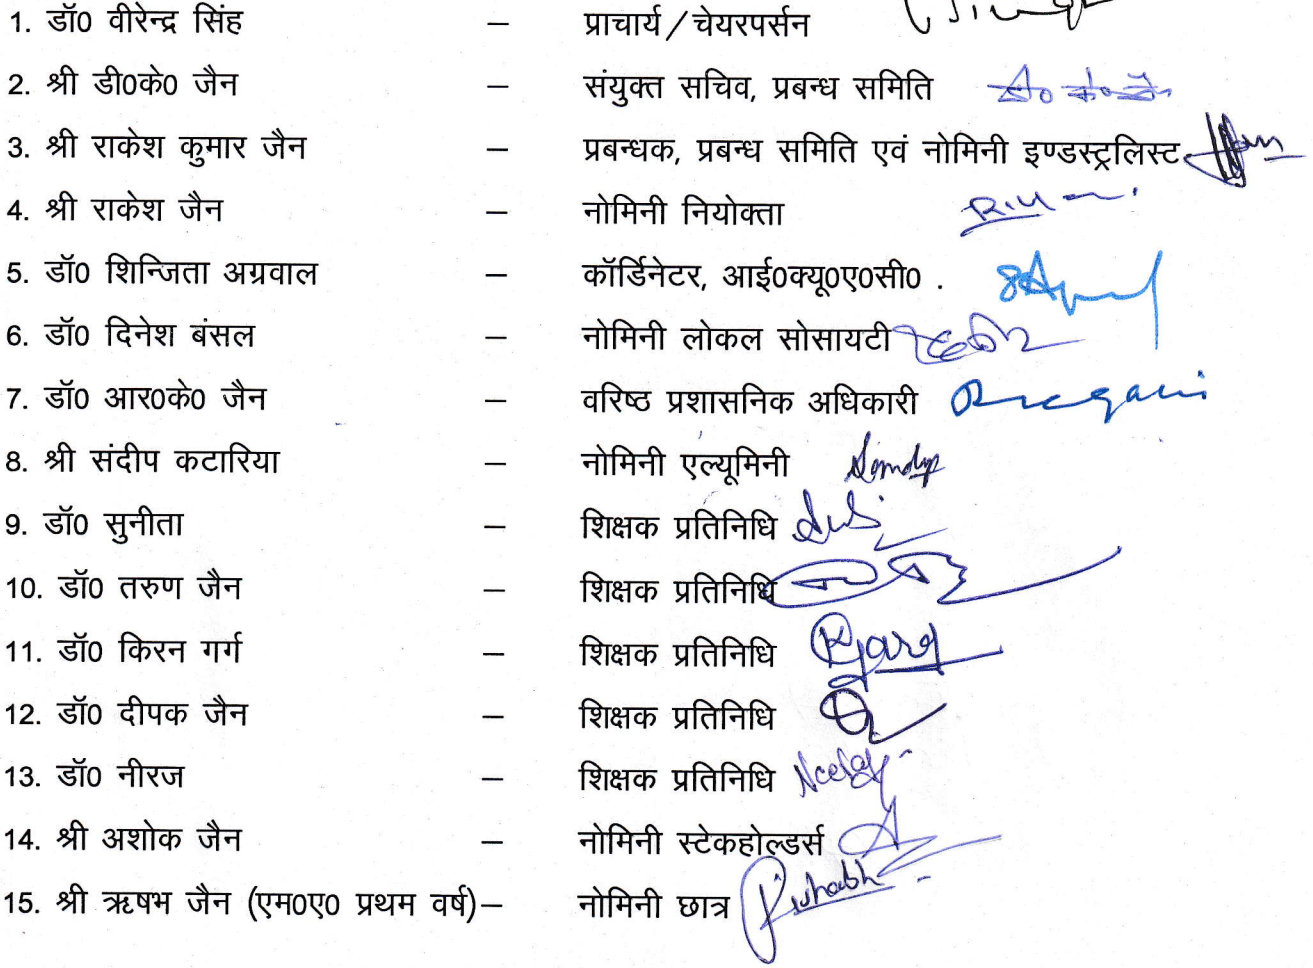 1. डॉ0 वीरेन्द्र सिंह – प्राचार्य/चेयरपर्सन
2. श्री डी0के0 जैन – संयुक्त सचिव, प्रबन्ध समिति
3. श्री राकेश कुमार जैन – प्रबन्धक, प्रबन्ध समिति एवं नोमिनी इण्डस्ट्रलिस्ट
4. श्री राकेश जैन – नोमिनी नियोक्ता
5. डॉ0 शिन्जिता अग्रवाल – कॉर्डिनेटर, आई0क्यू0ए0सी0 .
6. डॉ0 दिनेश बंसल – नोमिनी लोकल सोसायटी
7. डॉ0 आर0के0 जैन – वरिष्ठ प्रशासनिक अधिकारी
8. श्री संदीप कटारिया – नोमिनी एल्यूमिनी
9. डॉ0 सुनीता – शिक्षक प्रतिनिधि
10. डॉ0 तरुण जैन – शिक्षक प्रतिनिधि
11. डॉ0 किरन गर्ग – शिक्षक प्रतिनिधि Kgarg
12. डॉ0 दीपक जैन – शिक्षक प्रतिनिधि
13. डॉ0 नीरज – शिक्षक प्रतिनिधि Neeraj
14. श्री अशोक जैन – नोमिनी स्टेकहोल्डर्स
15. श्री ऋषभ जैन (एम0ए0 प्रथम वर्ष)– नोमिनी छात्र Rishabh